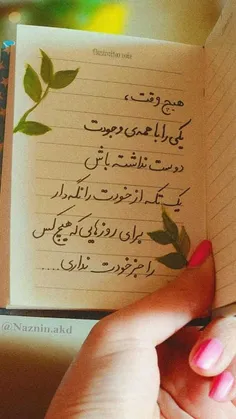 هیچ وقت،
یکی را با همه‌ی وجودت
دوست نداشته باش
یک تکه از خودت را نگه دار
برای روزهایی که هیچ کس
را جز خودت نداری....
@Naznin.akd